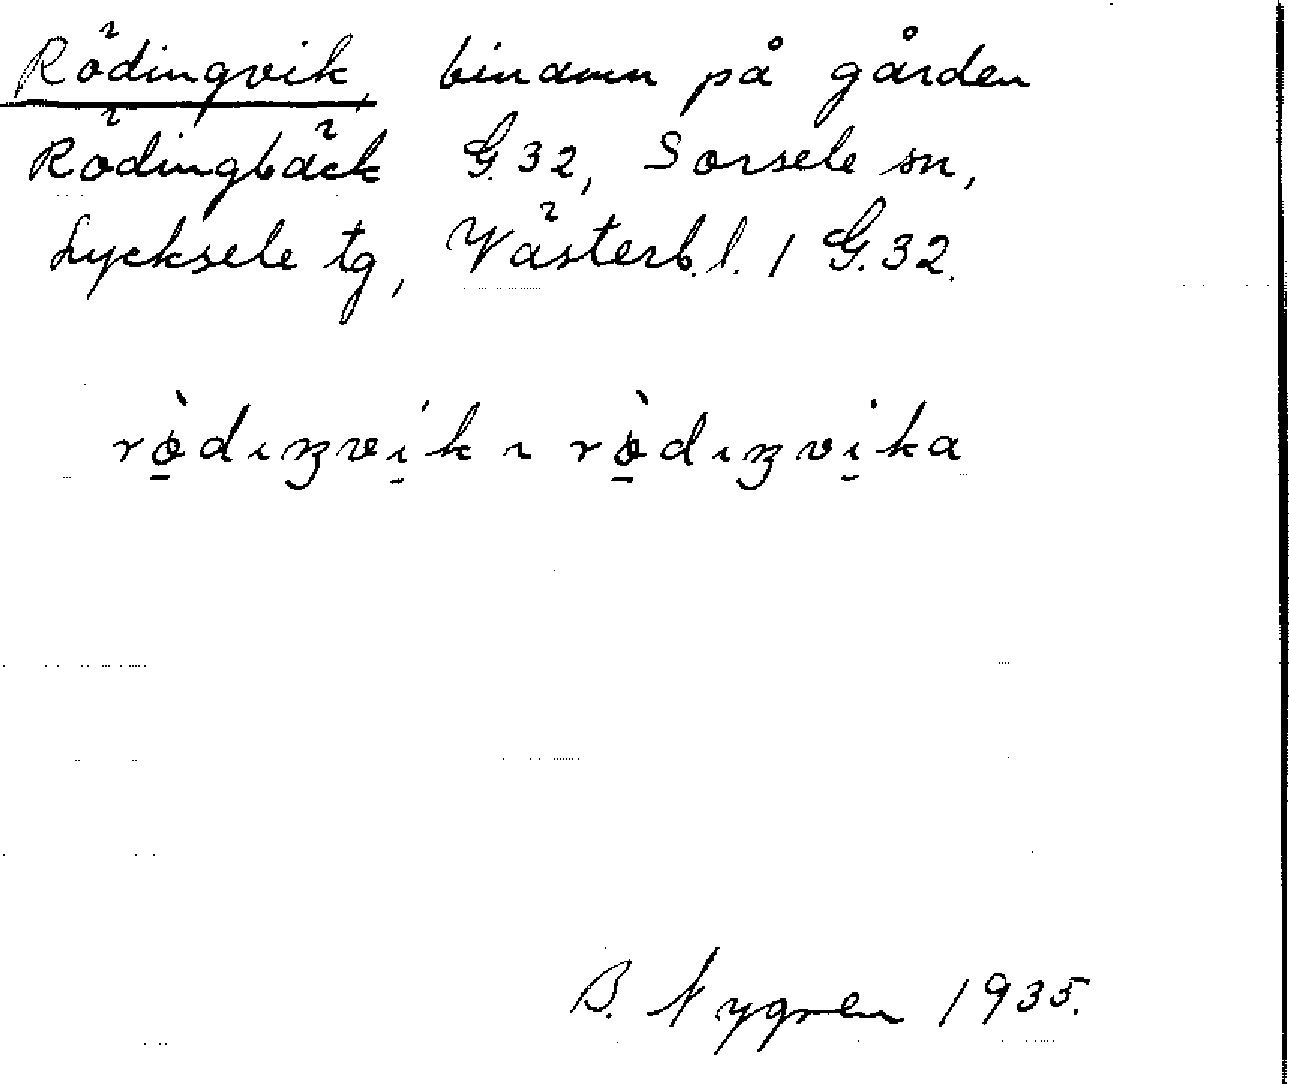 Rödingvik, binamn på gården
Rödingbäck G.32, Sorsele sn,
Lycksele tg, Västerb. l. / G.32.
rö̀dıŋvi̱k ı rö̀dıŋvi̱ka
B. Nygren 1935.